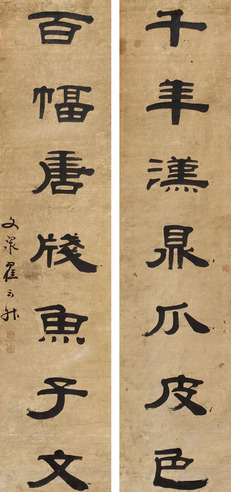 千年漢鼎爪皮色
百幅唐牋魚子文
文泉翟云升